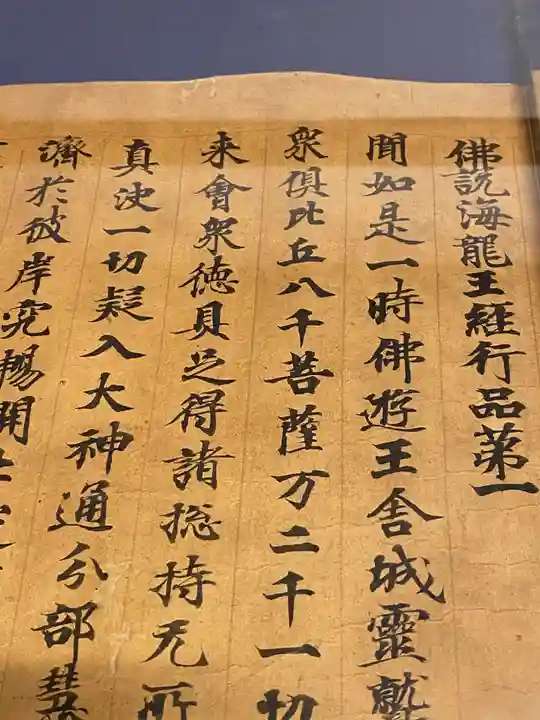 佛説海龍王經行品第一
聞如是一時佛遊王舍城靈鷲
衆俱比丘八千菩薩万二千一切
来會衆徳具足得諸捴持无所
真决一切疑入大神通分部彗
濟於彼岸究暢開士